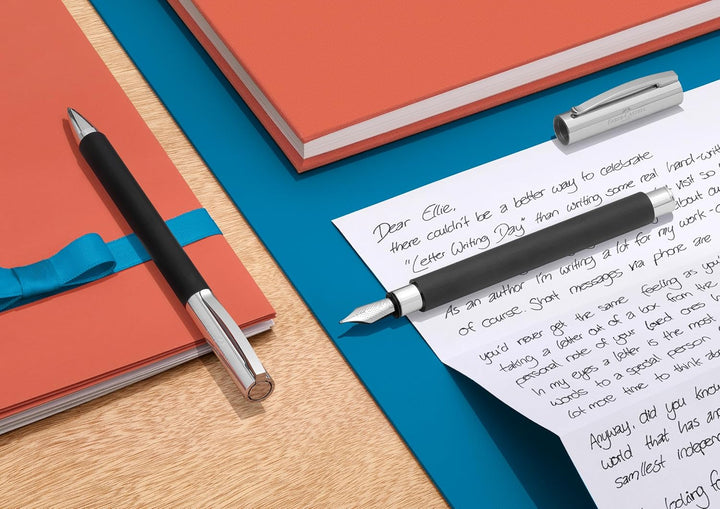 FABER-CASTELL
Dear Ellie,
there couldn't be a better way to celebrate
"Letter Writing Day" than writing some real hand-writt
visit so
about ou
As an author I'm writing a lot for my work -
of course. Short messages via phone are
you'd never get the same feeling as you
taking a letter out of a box from the
personal note of your loved ones
In my eyes a letter is the most
words to a special person
lot more time to think abo
Anyway, did you know
world that has an
samllest independ
looking fo